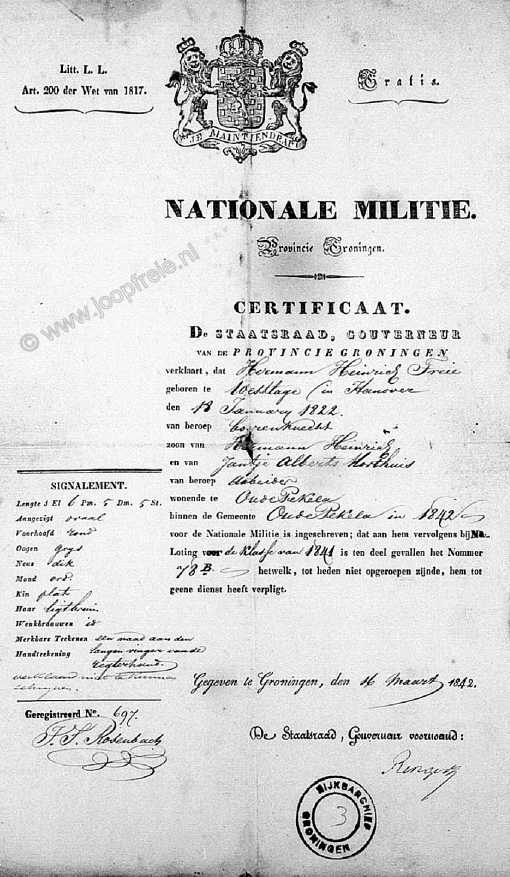 Litt. L. L.
Art. 200 der Wet van 1817.
Gratis.
JE MAINTIENDRAI
NATIONALE MILITIE.
Provincie Groningen.
CERTIFICAAT.
DE STAATSRAAD, GOUVERNEUR
VAN DE PROVINCIE GRONINGEN
verklaart, dat Hermann Heinrich Freie
geboren te in Hanover
den 18 January 1822.
van beroep boerenknecht
zoon van Hermann Heinrich
en van Jantje Alberts
van beroep arbeider
wonende te Oude Pekela
binnen de Gemeente Oude Pekela in 1842
voor de Nationale Militie is ingeschreven; dat aan hem vervolgens bij Na-
Loting voor de Klasse van 1841 is ten deel gevallen het Nommer
78 B. hetwelk, tot heden niet opgeroepen zijnde, hem tot
geene dienst heeft verpligt.
SIGNALEMENT.
Lengte 1 El 6 Pm. 5 Dm. 5 St.
Aangezigt ovaal
Voorhoofd rond
Oogen grys
Neus dik
Mond ord.
Kin plat
Haar ligtbruin
Wenkbraauwen id
Merkbare Teekenen een naad aan den
Handteekening langen vinger van de
regterhand.
verklaard niet te kunnen
schryven.
Geregistreerd No. 697.
Gegeven te Groningen, den 16 Maart 1842.
De Staatsraad, Gouverneur voornoemd:
RIJKSARCHIEF
GRONINGEN
3
© www.joopfreie.nl